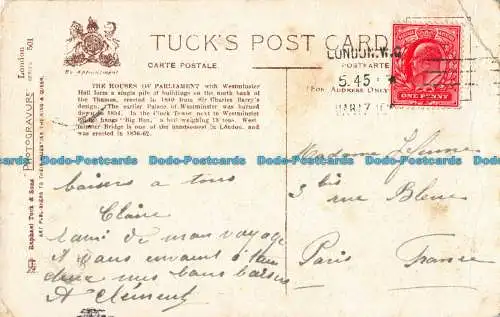 TUCK'S POST CARD
By Appointment
CARTE POSTALE.
POSTKARTE
(For Address Only)
THE HOUSES OF PARLIAMENT with Westminster
Hall form a single pile of buildings on the north bank of
the Thames, erected in 1840 from Sir Charles Barry's
design. The earlier Palace of Westminster was burned
down in 1834. In the Clock Tower next to Westminster
hangs "Big Ben," a bell weighing 13 tons. West-
minster Bridge is one of the handsomest in London, and
was erected in 1856-62.
PHOTOGRAVURE
London
SERIES 501
Raphael Tuck & Sons
ART PUBLISHERS TO THEIR MAJESTIES THE KING & QUEEN.
LONDON. W.C
5.45
MAR 7
ONE PENNY
baisers à tous
Claire
l'ami de mon voyage
deux mes bons baisers
A Clément
Madame
3 bis
rue Bleue
Paris France
www.bidstobuy-postcards.co.uk